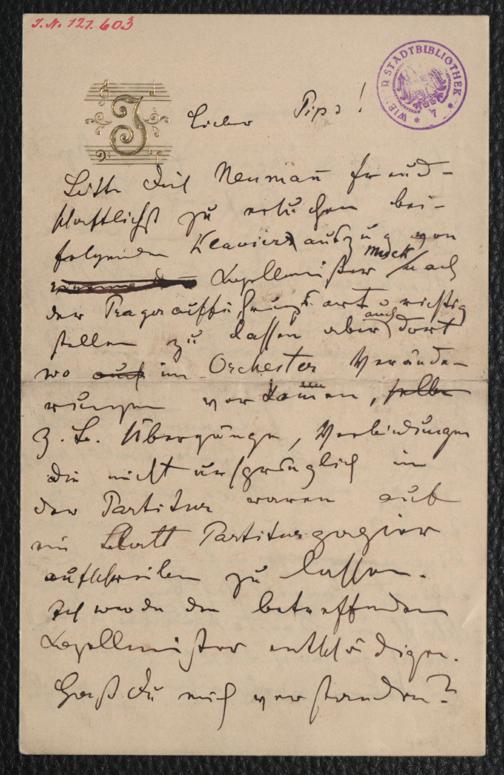 I.N. 121.603
WIENER STADTBIBLIOTHEK
J
Lieber Pips!
Bitte Dich Neumañ freund-
schaftlichst zu ersuchen bei-
folgenden Klavierauszug von
Kapellmeister Muck nach
der Prager Aufführungsart richtig
stellen zu lassen aber auch dort
wo auch im Orchester Verände-
rungen vorkamen,
z. B. Übergänge, Verbindungen
die nicht ursprünglich in
der Partitur waren auf
ein Blatt Partiturpapier
aufschreiben zu lassen.
Ich werde den betreffenden
Kapellmeister entschädigen.
Hast Du mich verstanden?